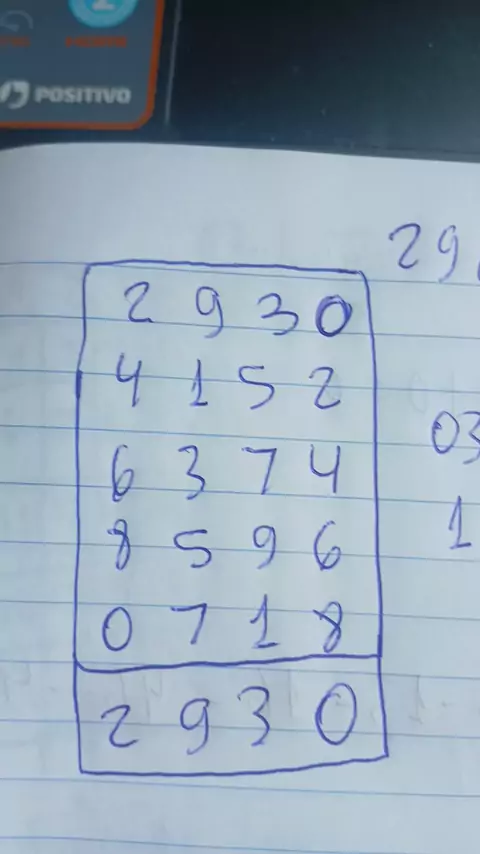 POSITIVO
29
2 9 3 0
4 1 5 2
6 3 7 4
03
8 5 9 6
1
0 7 1 8
2 9 3 0